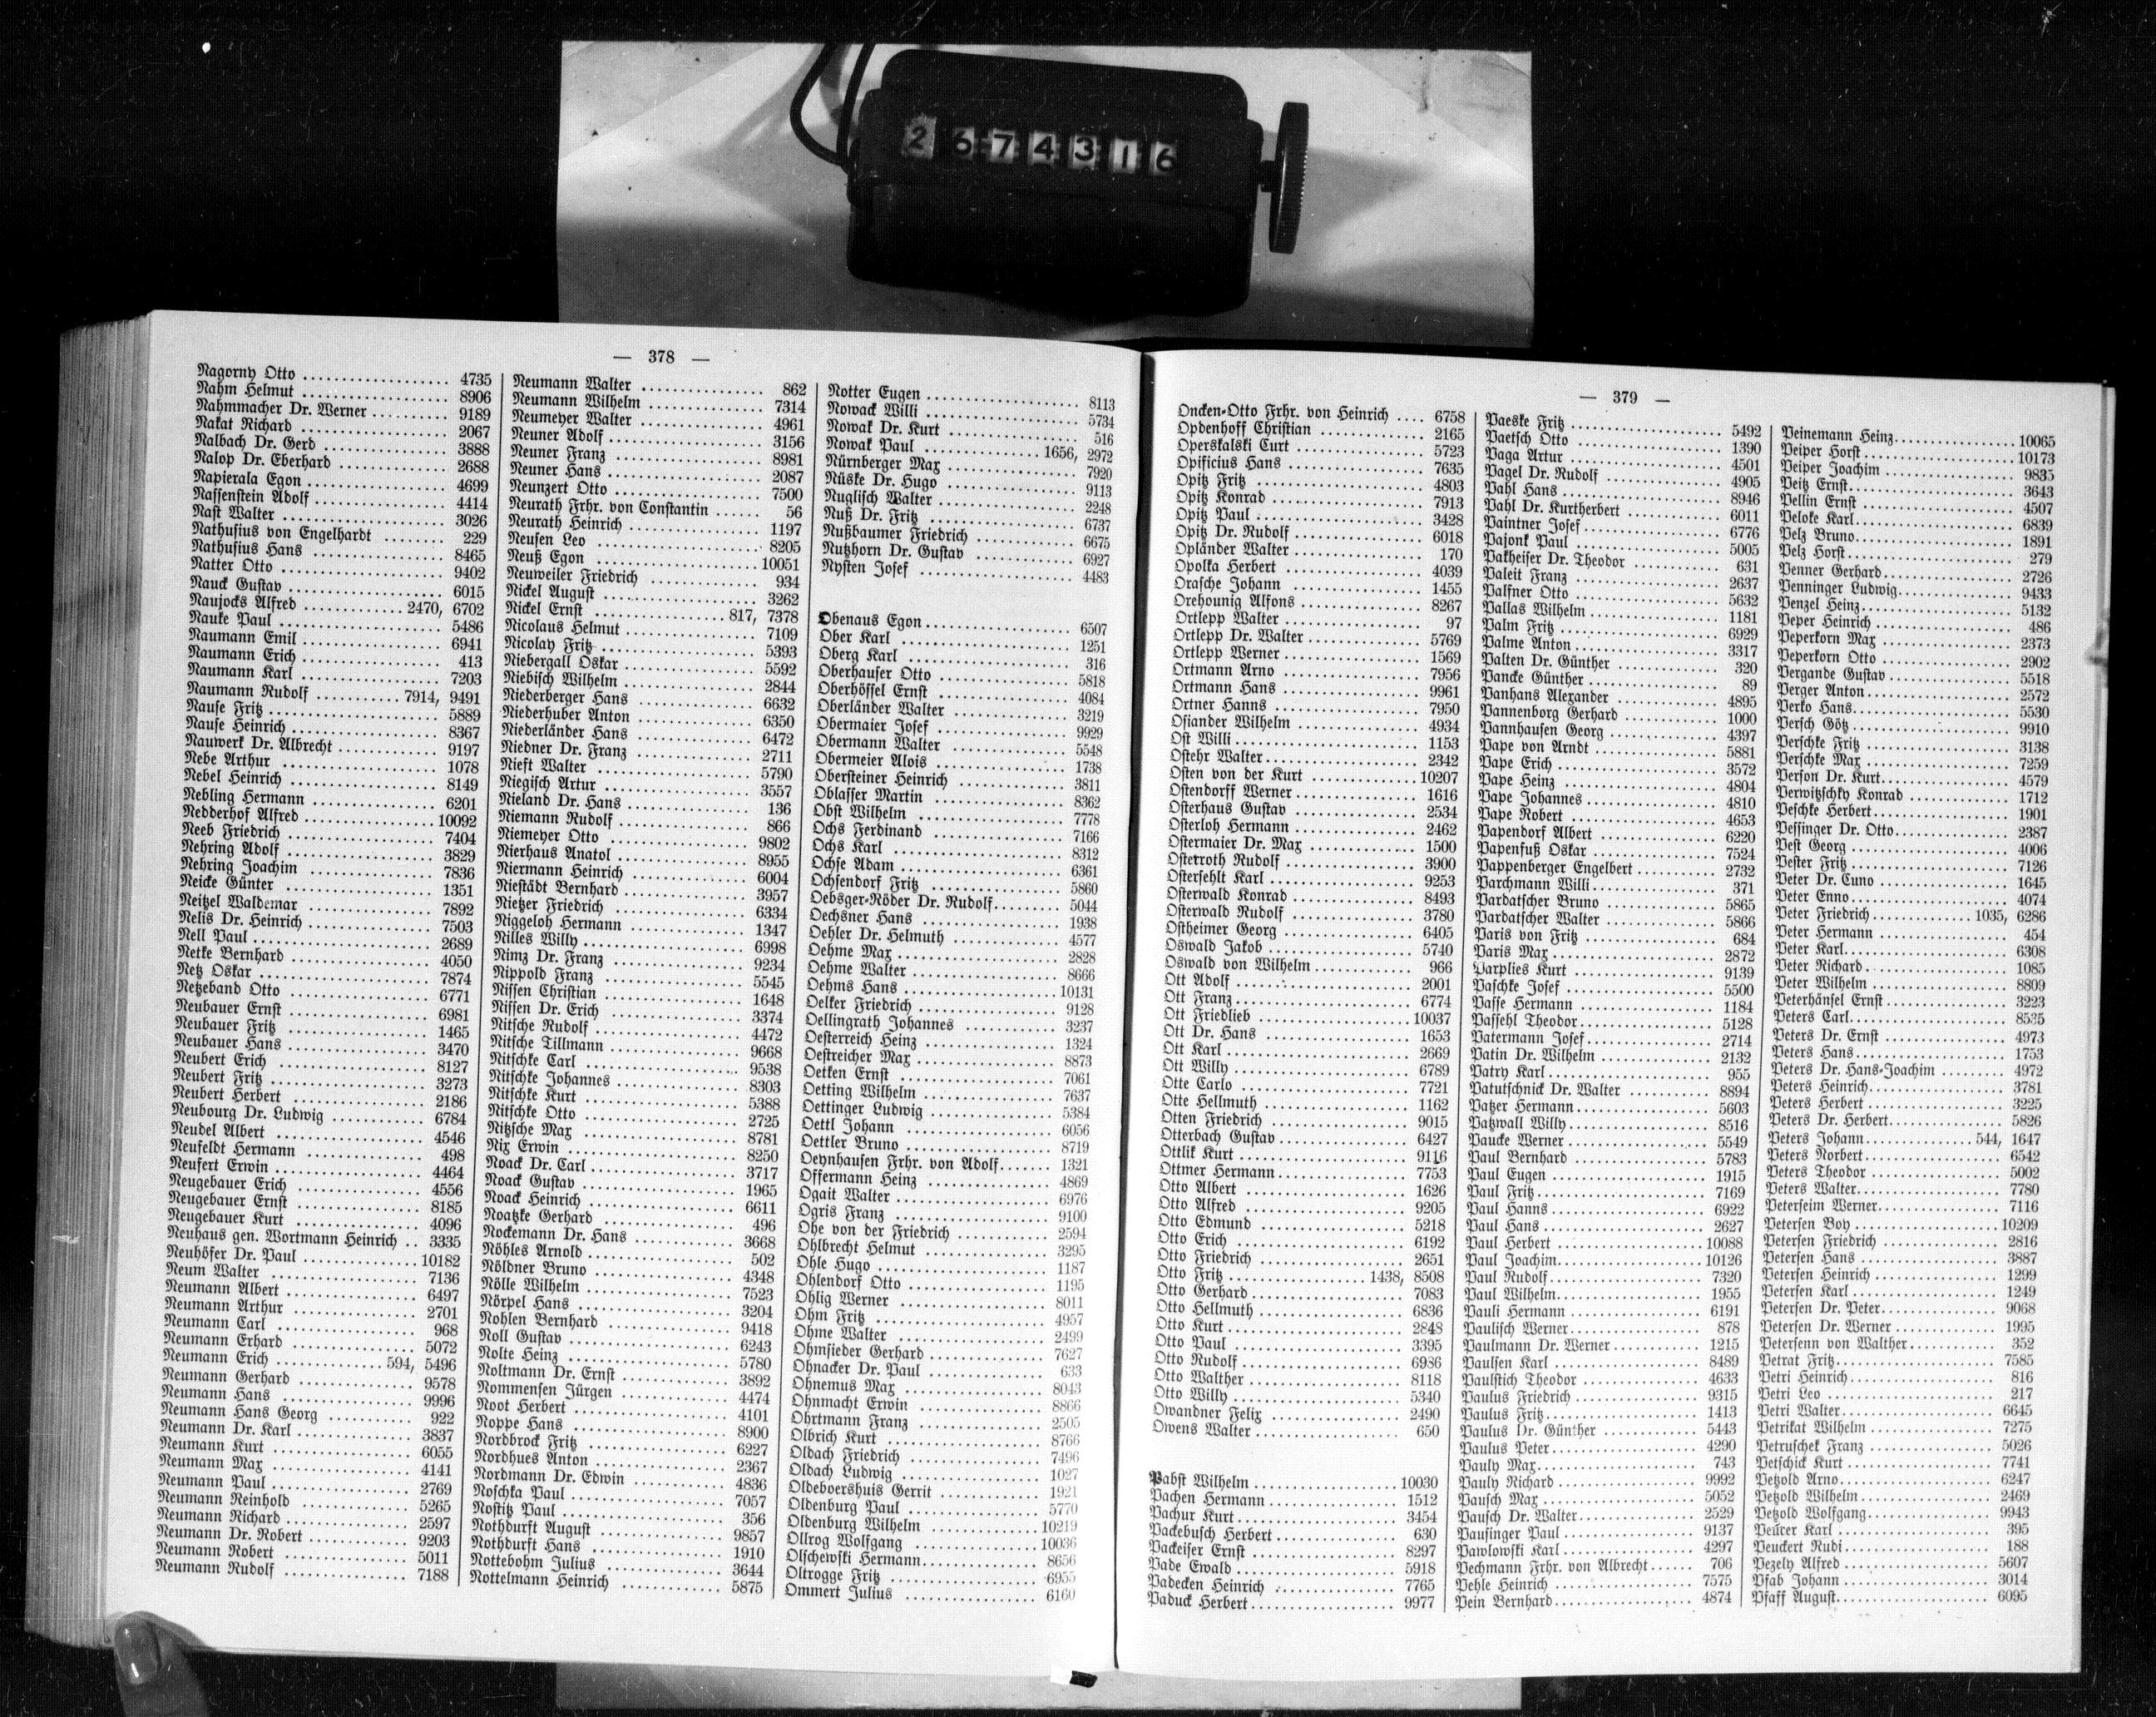 2674316
— 378 —
Nagorny Otto 4735
Nahm Helmut 8906
Nahmmacher Dr. Werner 9189
Nakat Richard 2067
Nalbach Dr. Gerd 3888
Nalop Dr. Eberhard 2688
Napierala Egon 4699
Nassenstein Adolf 4414
Nast Walter 3026
Nathusius von Engelhardt 229
Nathusius Hans 8465
Natter Otto 9402
Nauck Gustav 6015
Naujocks Alfred 2470, 6702
Nauke Paul 5486
Naumann Emil 6941
Naumann Erich 413
Naumann Karl 7203
Naumann Rudolf 7914, 9491
Nause Fritz 5889
Nause Heinrich 8367
Nauwerk Dr. Albrecht 9197
Nebe Arthur 1078
Nebel Heinrich 8149
Nebling Hermann 6201
Nedderhof Alfred 10092
Neeb Friedrich 7404
Nehring Adolf 3829
Nehring Joachim 7836
Neicke Günter 1351
Neitzel Waldemar 7892
Nelis Dr. Heinrich 7503
Nell Paul 2689
Netke Bernhard 4050
Netz Oskar 7874
Netzeband Otto 6771
Neubauer Ernst 6981
Neubauer Fritz 1465
Neubauer Hans 3470
Neubert Erich 8127
Neubert Fritz 3273
Neubert Herbert 2186
Neubourg Dr. Ludwig 6784
Neudel Albert 4546
Neufeldt Hermann 498
Neufert Erwin 4464
Neugebauer Erich 4556
Neugebauer Ernst 8185
Neugebauer Kurt 4096
Neuhaus gen. Wortmann Heinrich 3335
Neuhöfer Dr. Paul 10182
Neum Walter 7136
Neumann Albert 6497
Neumann Arthur 2701
Neumann Carl 968
Neumann Erhard 5072
Neumann Erich 594, 5496
Neumann Gerhard 9578
Neumann Hans 9996
Neumann Hans Georg 922
Neumann Dr. Karl 3837
Neumann Kurt 6055
Neumann Max 4141
Neumann Paul 2769
Neumann Reinhold 5265
Neumann Richard 2597
Neumann Dr. Robert 9203
Neumann Robert 5011
Neumann Rudolf 7188
Neumann Walter 862
Neumann Wilhelm 7314
Neumeyer Walter 4961
Neuner Adolf 3156
Neuner Franz 8981
Neuner Hans 2087
Neunzert Otto 7500
Neurath Frhr. von Constantin 56
Neurath Heinrich 1197
Neusen Leo 8205
Neuß Egon 10051
Neuweiler Friedrich 934
Nickel August 3262
Nickel Ernst 817, 7378
Nicolaus Helmut 7109
Nicolay Fritz 5393
Niebergall Oskar 5592
Niebisch Wilhelm 2844
Niederberger Hans 6632
Niederhuber Anton 6350
Niederländer Hans 6472
Niedner Dr. Franz 2711
Nieft Walter 5790
Niegisch Artur 3557
Nieland Dr. Hans 136
Niemann Rudolf 866
Niemeyer Otto 9802
Nierhaus Anatol 8955
Niermann Heinrich 6004
Niestädt Bernhard 3957
Nietzer Friedrich 6334
Niggeloh Hermann 1347
Nilles Willy 6998
Nimz Dr. Franz 9234
Nippold Franz 5545
Nissen Christian 1648
Nissen Dr. Erich 3374
Nitsche Rudolf 4472
Nitsche Tillmann 9668
Nitschke Carl 9538
Nitschke Johannes 8303
Nitschke Kurt 5388
Nitschke Otto 2725
Nitzsche Max 8781
Nix Erwin 8250
Noack Dr. Carl 3717
Noack Gustav 1965
Noack Heinrich 6611
Noatzke Gerhard 496
Nockemann Dr. Hans 3668
Nöhles Arnold 502
Nöldner Bruno 4348
Nölle Wilhelm 7523
Nörpel Hans 3204
Nohlen Bernhard 9418
Noll Gustav 6243
Nolte Heinz 5780
Noltmann Dr. Ernst 3892
Nommensen Jürgen 4474
Noot Herbert 4101
Noppe Hans 8900
Nordbrock Fritz 6227
Nordhues Anton 2367
Nordmann Dr. Edwin 4836
Noschka Paul 7057
Nostitz Paul 356
Nothdurft August 9857
Nothdurft Hans 1910
Nottebohm Julius 3644
Nottelmann Heinrich 5875
Notter Eugen 8113
Nowack Willi 5734
Nowak Dr. Kurt 516
Nowak Paul 1656, 2972
Nürnberger Max 7920
Nüske Dr. Hugo 9113
Nuglisch Walter 2248
Nuß Dr. Fritz 6737
Nußbaumer Friedrich 6675
Nutzhorn Dr. Gustav 6927
Nysten Josef 4483
Obenaus Egon 6507
Ober Karl 1251
Oberg Karl 316
Oberhauser Otto 5818
Oberhössel Ernst 4084
Oberländer Walter 3219
Obermaier Josef 9929
Obermann Walter 5548
Obermeier Alois 1738
Obersteiner Heinrich 3811
Oblasser Martin 8362
Obst Wilhelm 7778
Ochs Ferdinand 7166
Ochs Karl 8312
Ochse Adam 6361
Ochsendorf Fritz 5860
Oebsger-Röder Dr. Rudolf 5044
Oechsner Hans 1938
Oehler Dr. Helmuth 4577
Oehme Max 2828
Oehme Walter 8666
Oehms Hans 10131
Oelker Friedrich 9128
Oellingrath Johannes 3237
Oesterreich Heinz 1324
Oestreicher Max 8873
Oetken Ernst 7061
Oetting Wilhelm 7637
Oettinger Ludwig 5384
Oettl Johann 6056
Oettler Bruno 8719
Oeynhausen Frhr. von Adolf 1321
Offermann Heinz 4869
Ogait Walter 6976
Ogris Franz 9100
Ohe von der Friedrich 2594
Ohlbrecht Helmut 3295
Ohle Hugo 1187
Ohlendorf Otto 1195
Ohlig Werner 8011
Ohm Fritz 4957
Ohme Walter 2499
Ohmsieder Gerhard 7627
Ohnacker Dr. Paul 633
Ohnemus Max 8043
Ohnmacht Erwin 8866
Ohrtmann Franz 2505
Olbrich Kurt 8766
Oldach Friedrich 7496
Oldach Ludwig 1027
Oldeboershuis Gerrit 1921
Oldenburg Paul 5770
Oldenburg Wilhelm 10219
Ollrog Wolfgang 10036
Olschewski Hermann 8656
Oltrogge Fritz 6955
Ommert Julius 6160
— 379 —
Oncken-Otto Frhr. von Heinrich 6758
Opdenhoff Christian 2165
Operskalski Curt 5723
Opificius Hans 7635
Opitz Fritz 4803
Opitz Konrad 7913
Opitz Paul 3428
Opitz Dr. Rudolf 6018
Opländer Walter 170
Opolka Herbert 4039
Orasche Johann 1455
Orehounig Alfons 8267
Ortlepp Walter 97
Ortlepp Dr. Walter 5769
Ortlepp Werner 1569
Ortmann Arno 7956
Ortmann Hans 9961
Ortner Hanns 7950
Osiander Wilhelm 4934
Ost Willi 1153
Ostehr Walter 2342
Osten von der Kurt 10207
Ostendorff Werner 1616
Osterhaus Gustav 2534
Osterloh Hermann 2462
Ostermaier Dr. Max 1500
Osterroth Rudolf 3900
Ostersehlt Karl 9253
Osterwald Konrad 8493
Osterwald Rudolf 3780
Ostheimer Georg 6405
Oswald Jakob 5740
Oswald von Wilhelm 966
Ott Adolf 2001
Ott Franz 6774
Ott Friedlieb 10037
Ott Dr. Hans 1653
Ott Karl 2669
Ott Willy 6789
Otte Carlo 7721
Otte Hellmuth 1162
Otten Friedrich 9015
Otterbach Gustav 6427
Ottlik Kurt 9116
Ottmer Hermann 7753
Otto Albert 1626
Otto Alfred 9205
Otto Edmund 5218
Otto Erich 6192
Otto Friedrich 2651
Otto Fritz 1438, 8508
Otto Gerhard 7083
Otto Hellmuth 6836
Otto Kurt 2848
Otto Paul 3395
Otto Rudolf 6986
Otto Walther 8118
Otto Willy 5340
Owandner Felix 2490
Owens Walter 650
Pabst Wilhelm 10030
Pachen Hermann 1512
Pachur Kurt 3454
Packebusch Herbert 630
Packeiser Ernst 8297
Pade Ewald 5918
Padecken Heinrich 7765
Paduck Herbert 9977
Paeske Fritz 5492
Paetsch Otto 1390
Paga Artur 4501
Pagel Dr. Rudolf 4905
Pahl Hans 8946
Pahl Dr. Kurtherbert 6011
Paintner Josef 6776
Pajonk Paul 5005
Pakheiser Dr. Theodor 631
Paleit Franz 2637
Palfner Otto 5632
Pallas Wilhelm 1181
Palm Fritz 6929
Palme Anton 3317
Palten Dr. Günther 320
Pancke Günther 89
Panhans Alexander 4895
Pannenborg Gerhard 1000
Pannhausen Georg 4397
Pape von Arndt 5881
Pape Erich 3572
Pape Heinz 4804
Pape Johannes 4810
Pape Robert 4653
Papendorf Albert 6220
Papenfuß Oskar 7524
Pappenberger Engelbert 2732
Parchmann Willi 371
Pardatscher Bruno 5865
Pardatscher Walter 5866
Paris von Fritz 684
Paris Max 2872
Parplies Kurt 9139
Paschke Josef 5500
Passe Hermann 1184
Passehl Theodor 5128
Patermann Josef 2714
Patin Dr. Wilhelm 2132
Patry Karl 955
Patutschnick Dr. Walter 8894
Patzer Hermann 5603
Patzwall Willy 8516
Paucke Werner 5549
Paul Bernhard 5783
Paul Eugen 1915
Paul Fritz 7169
Paul Hanns 6922
Paul Hans 2627
Paul Herbert 10088
Paul Joachim 10126
Paul Rudolf 7320
Paul Wilhelm 1955
Pauli Hermann 6191
Paulisch Werner 878
Paulmann Dr. Werner 1215
Paulsen Karl 8489
Paulstich Theodor 4633
Paulus Friedrich 9315
Paulus Fritz 1413
Paulus Dr. Günther 5443
Paulus Peter 4290
Pauly Max 743
Pauly Richard 9992
Pausch Max 5052
Pausch Dr. Walter 2529
Pausinger Paul 9137
Pawlowski Karl 4297
Pechmann Frhr. von Albrecht 706
Pehle Heinrich 7575
Pein Bernhard 4874
Peinemann Heinz 10065
Peiper Horst 10173
Peiper Joachim 9835
Peitz Ernst 3643
Pellin Ernst 4507
Peloke Karl 6839
Pelz Bruno 1891
Pelz Horst 279
Penner Gerhard 2726
Penninger Ludwig 9433
Penzel Heinz 5132
Peper Heinrich 486
Peperkorn Max 2373
Peperkorn Otto 2902
Pergande Gustav 5518
Perger Anton 2572
Perko Hans 5530
Persch Götz 9910
Perschke Fritz 3138
Perschke Max 7259
Person Dr. Kurt 4579
Perwitzschky Konrad 1712
Peschke Herbert 1901
Pessinger Dr. Otto 2387
Pest Georg 4006
Pester Fritz 7126
Peter Dr. Cuno 1645
Peter Enno 4074
Peter Friedrich 1035, 6286
Peter Hermann 454
Peter Karl 6308
Peter Richard 1085
Peter Wilhelm 8809
Peterhänsel Ernst 3223
Peters Carl 8535
Peters Dr. Ernst 4973
Peters Hans 1753
Peters Dr. Hans-Joachim 4972
Peters Heinrich 3781
Peters Herbert 3225
Peters Dr. Herbert 5826
Peters Johann 544, 1647
Peters Norbert 6542
Peters Theodor 5002
Peters Walter 7780
Peterseim Werner 7116
Petersen Boy 10209
Petersen Friedrich 2816
Petersen Hans 3887
Petersen Heinrich 1299
Petersen Karl 1249
Petersen Dr. Peter 9068
Petersen Dr. Werner 1995
Petersenn von Walther 352
Petrat Fritz 7585
Petri Heinrich 816
Petri Leo 217
Petri Walter 6645
Petrikat Wilhelm 7275
Petruschek Franz 5026
Petschick Kurt 7741
Petzold Arno 6247
Petzold Wilhelm 2469
Petzold Wolfgang 9943
Peurer Karl 395
Peuckert Rudi 188
Pezely Alfred 5607
Pfab Johann 3014
Pfaff August 6095